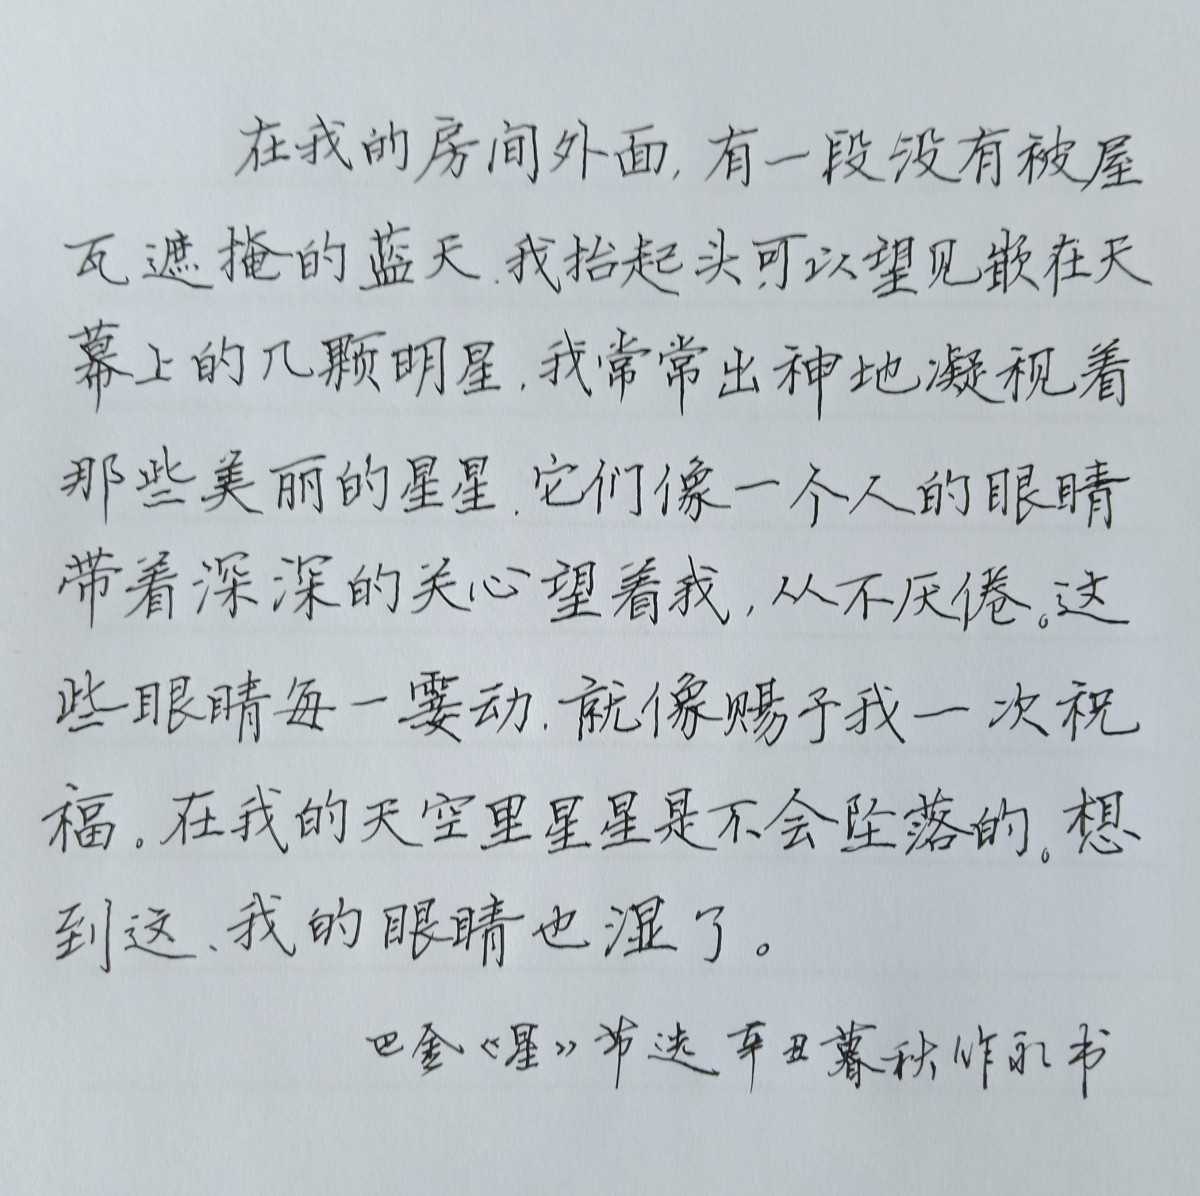 在我的房间外面,有一段没有被屋
瓦遮掩的蓝天.我抬起头可以望见嵌在天
幕上的几颗明星.我常常出神地凝视着
那些美丽的星星.它们像一个人的眼睛
带着深深的关心望着我,从不厌倦。这
些眼睛每一霎动.就像赐予我一次祝
福。在我的天空里星星是不会坠落的。想
到这、我的眼睛也湿了。
巴金《星》节选 辛丑暮秋作永书